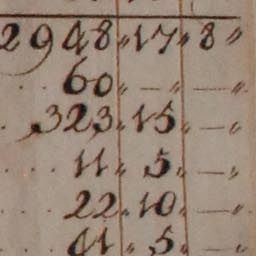 2948 " 17 " 8 "
. . 60 " — " — "
. 323 " 15 " — "
. . . . 11 " 5 " — "
. . . . 22 " 10 " — "
. . . . 41 " 5 " — "